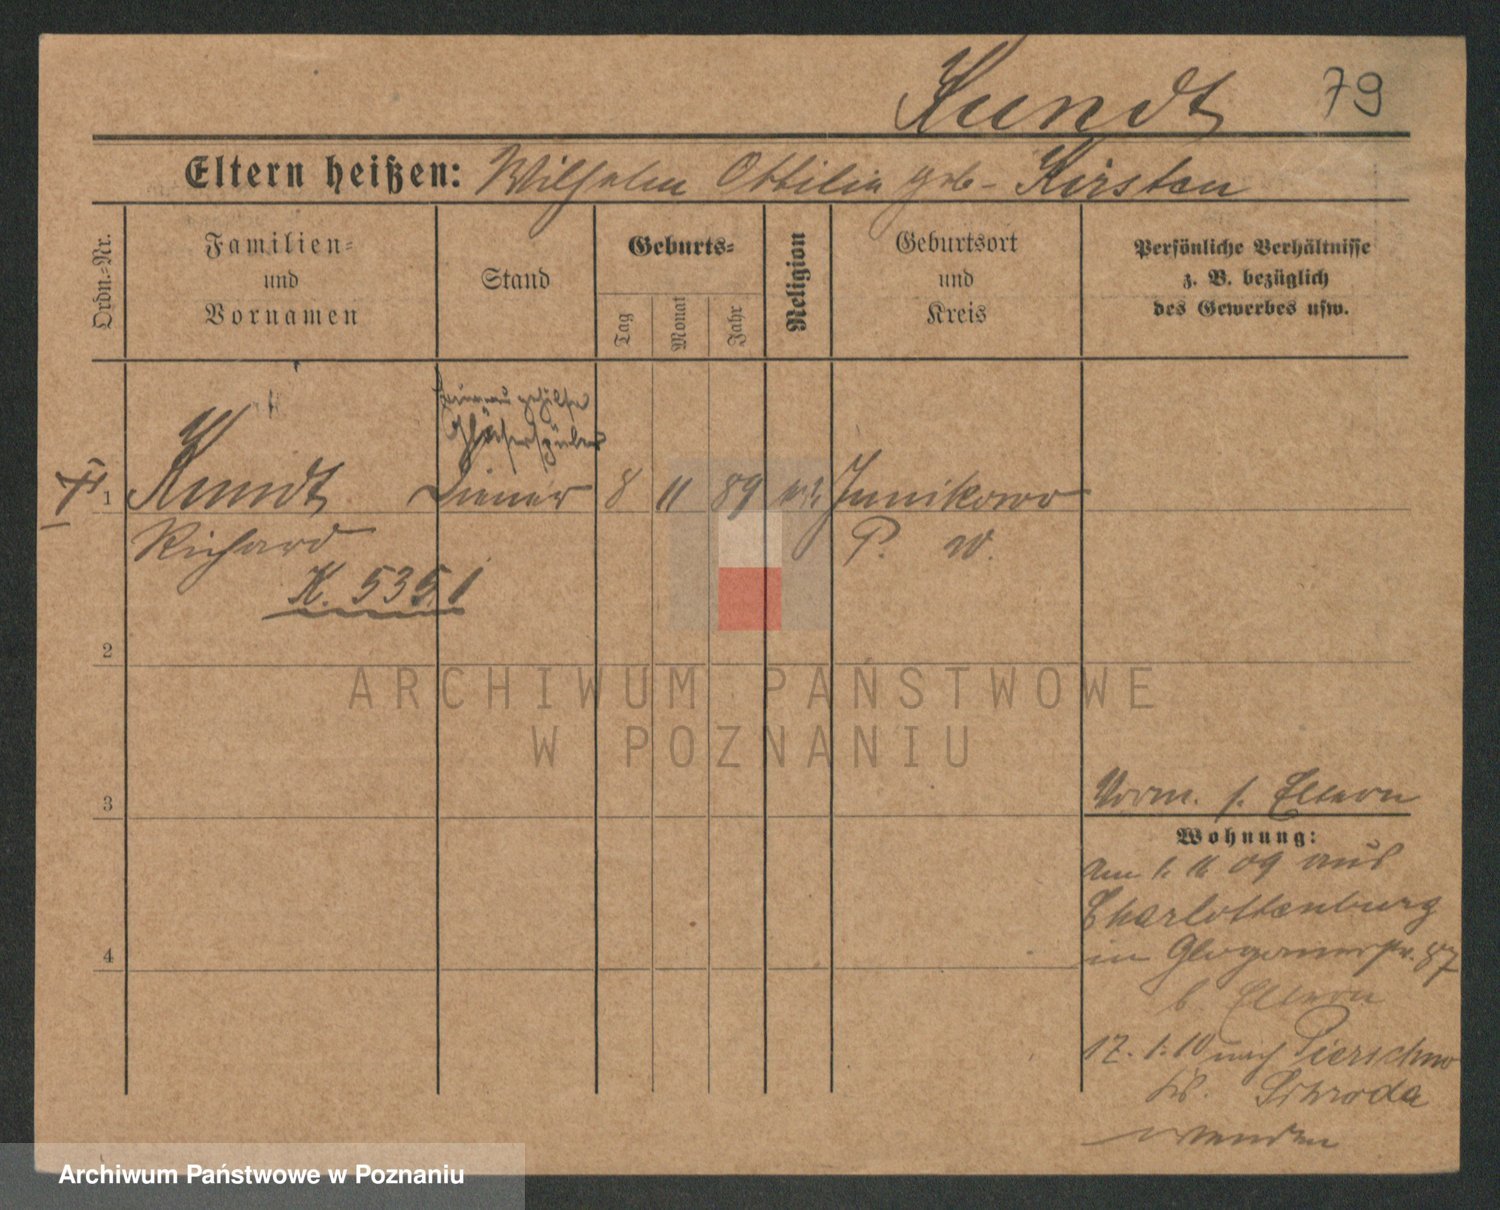 Kundt 79
Eltern heißen: Wilhelm Ottilie geb. Kirsten
Ordn.-Nr.
Familien-
und
Vornamen
Stand
Geburts-
Tag
Monat
Jahr
Religion
Geburtsort
und
Kreis
Persönliche Verhältnisse
z. B. bezüglich
des Gewerbes usw.
1
Kundt Diener 8 11 89 Junikowo
Richard P. W.
K. 5351
2
3
4
Vorm. s. Eltern
Wohnung:
am 1. 11 09 aus
Charlottenburg
in Glogauerstr. 87
b. Eltern
17. 1. 10 nach Pierschno
Schroda
wenden
ARCHIWUM PAŃSTWOWE
W POZNANIU
Archiwum Państwowe w Poznaniu